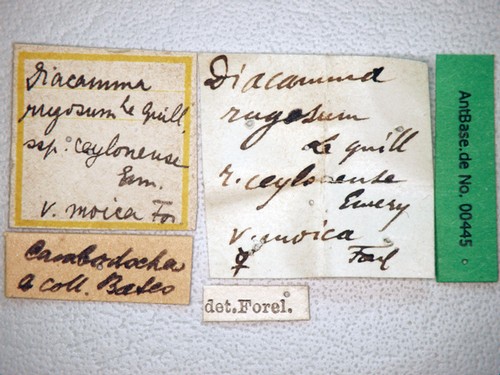 Diacamma
rugosum Le Guill.
ssp. ceylonense
Em.
v. moica For
Cambodcha
a coll. Bates
Diacamma
rugosum
Le Guill
r. ceylonense
Emery
v. moica
☿ Forel
det.Forel.
AntBase.de No. 00445